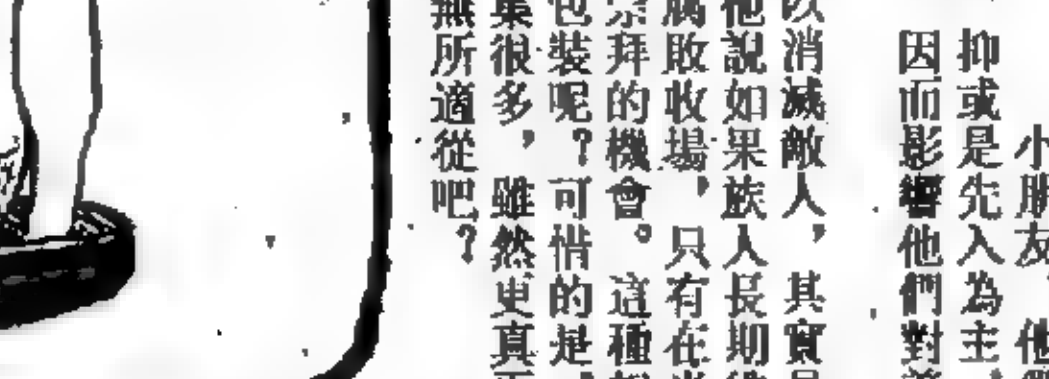 小朋友、他
抑或是先入為主、
因而影響他們對
以消滅敵人，其實
他說如果族人長期
腐敗收場，只有在
崇拜的機會。這種
包裝呢？可惜的是，
集很多，雖然更真
無所適從吧？